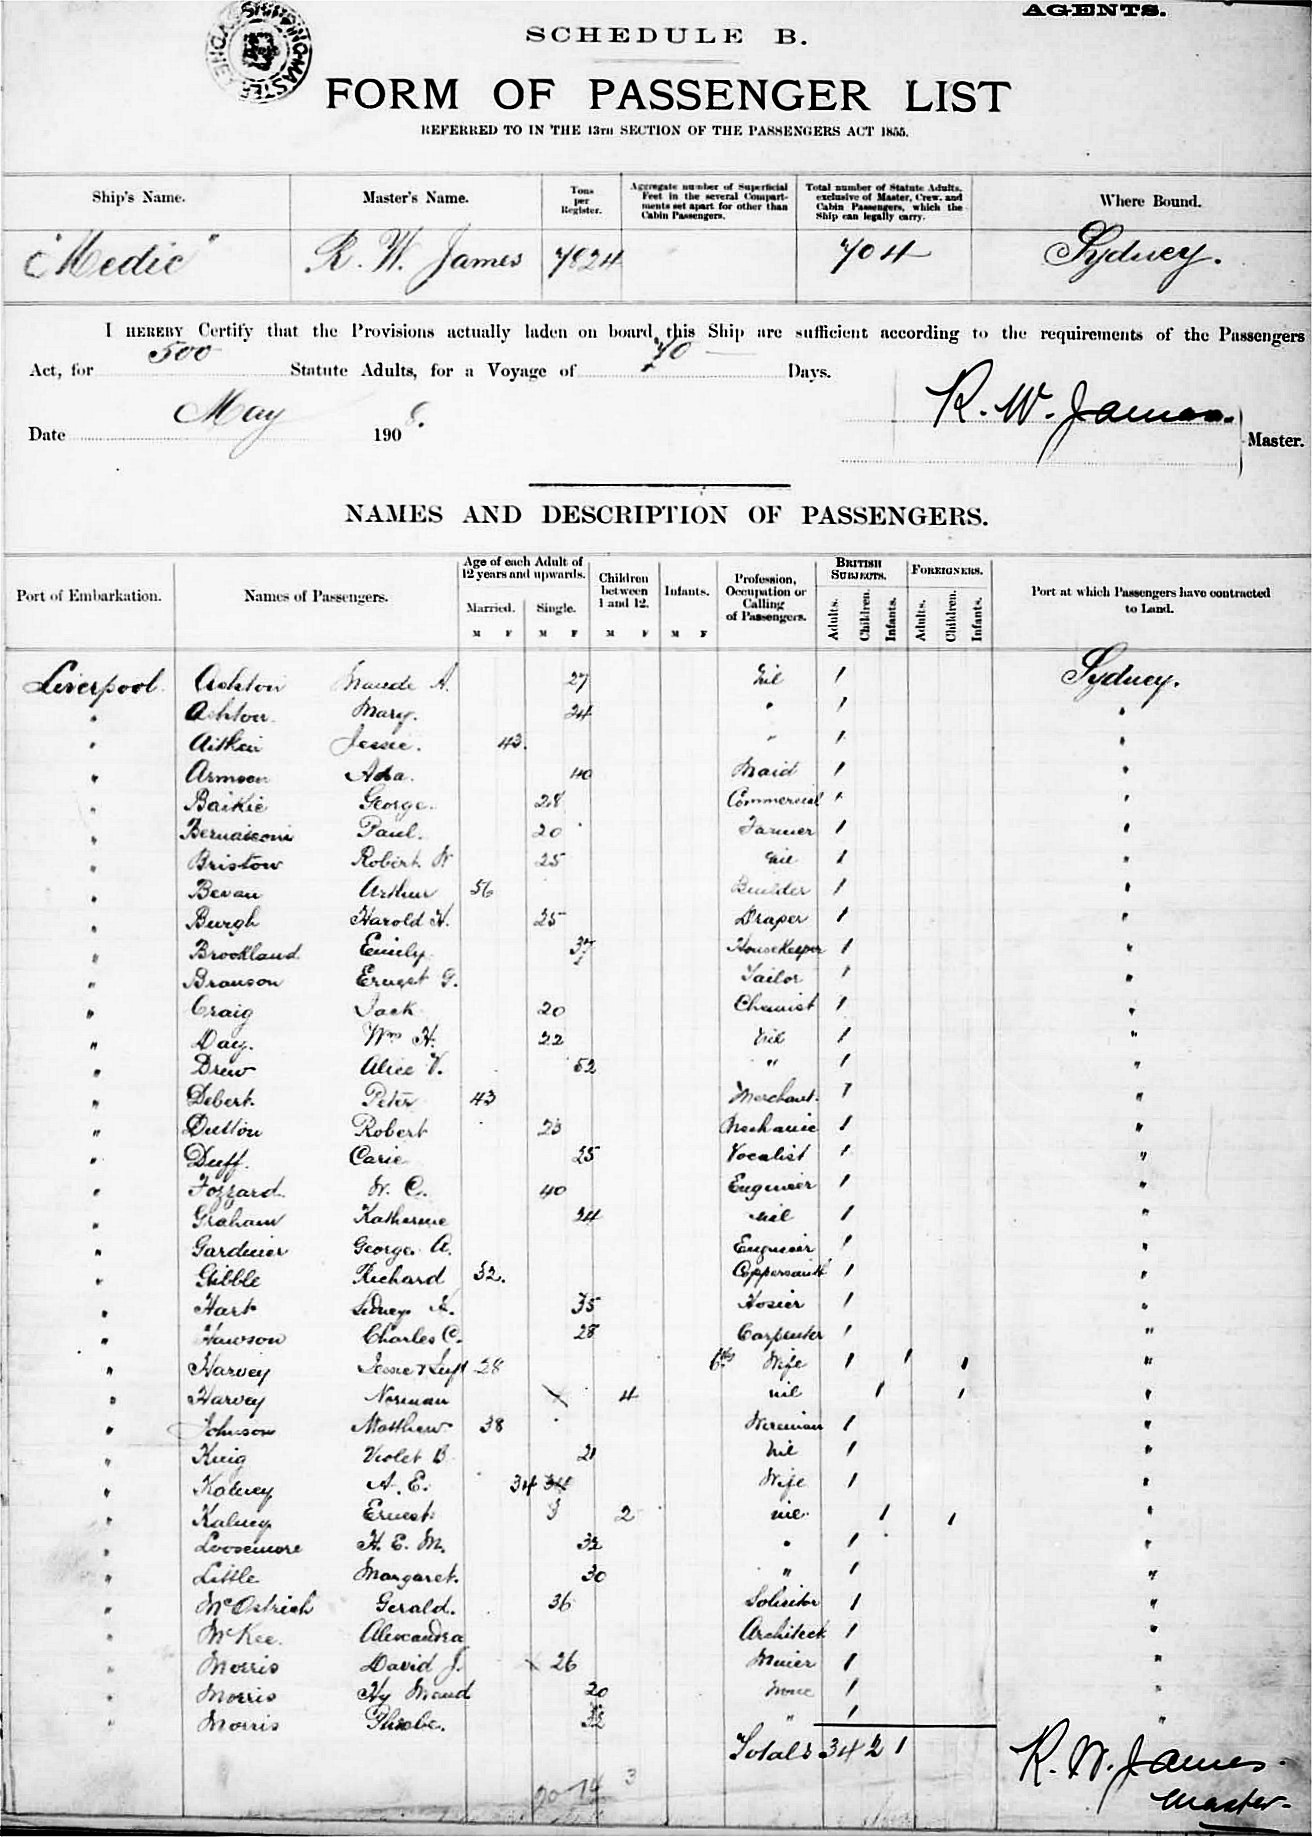 AGENTS.
SYDNEY SHIPPING MASTER
SCHEDULE B.
FORM OF PASSENGER LIST
REFERRED TO IN THE 13TH SECTION OF THE PASSENGERS ACT 1855.
Ship's Name. Master's Name. Tons per Register. Aggregate number of Superficial Feet in the several Compartments set apart for other than Cabin Passengers. Total number of Statute Adults, exclusive of Master, Crew, and Cabin Passengers, which the Ship can legally carry. Where Bound.
"Medic" R. W. James 7824 704 Sydney.
I HEREBY Certify that the Provisions actually laden on board this Ship are sufficient according to the requirements of the Passengers
Act, for 500 Statute Adults, for a Voyage of 70 Days.
R. W. James. Master.
Date May 1908.
NAMES AND DESCRIPTION OF PASSENGERS.
Port of Embarkation. Names of Passengers. Age of each Adult of 12 years and upwards. Married. Single. Children between 1 and 12. Infants. Profession, Occupation or Calling of Passengers. BRITISH SUBJECTS. FOREIGNERS. Port at which Passengers have contracted to Land.
M F M F M F M F Adults. Children. Infants. Adults. Children. Infants.
Liverpool Ashton Maude A. 27 Nil 1 Sydney.
" Ashton Mary. 24 " 1 "
" Aitken Jessie. 43. " 1 "
" Armson Ada. 40 Maid 1 "
" Baikie George. 28 Commercial 1 "
" Bernasconi Paul. 20 Farmer 1 "
" Bristow Robert W 25 nil 1 "
" Bevan Arthur 56 Builder 1 "
" Burgh Harold H. 35 Draper 1 "
" Brookland Emily. 37 Housekeeper 1 "
" Branson Ernest G. Tailor 1 "
" Craig Jack 20 Chemist 1 "
" Day. Wm H. 22 Nil 1 "
" Drew Alice V. 52 " 1 "
" Debert. Peter 43 Merchant. 1 "
" Dutton Robert 23 Mechanic 1 "
" Duff. Carie 25 Vocalist 1 "
" Fozzard W. C. 40 Engineer 1 "
" Graham Katherine 24 nil 1 "
" Gardiner George A. Engineer 1 "
" Gibble Richard 32. Coppersmith 1 "
" Hart Sidney 35 Hosier 1 "
" Hawson Charles C. 28 Carpenter 1 "
" Harvey Jessie & Inft 28 Wife 1 1 1 "
" Harvey Norman 4 nil 1 1 "
" Johnson Matthew 38 Wireman 1 "
" King Violet B. 21 Nil 1 "
" Kalucy A. E. 34 34 Wife 1 "
" Kalucy Ernest 3 2 nil. 1 1 "
" Loosemore H. E. M. 32 " 1 "
" Little Margaret. 30 " 1 "
" McOstrich Gerald. 36 Solicitor 1 "
" McKee. Alexandra Architect 1 "
" Morris David J. 26 Miner 1 "
" Morris Hy Maud 20 None 1 "
" Morris Phoebe. " 1 "
Totals 34 2 1
20 14 3
R. W. James.
Master.